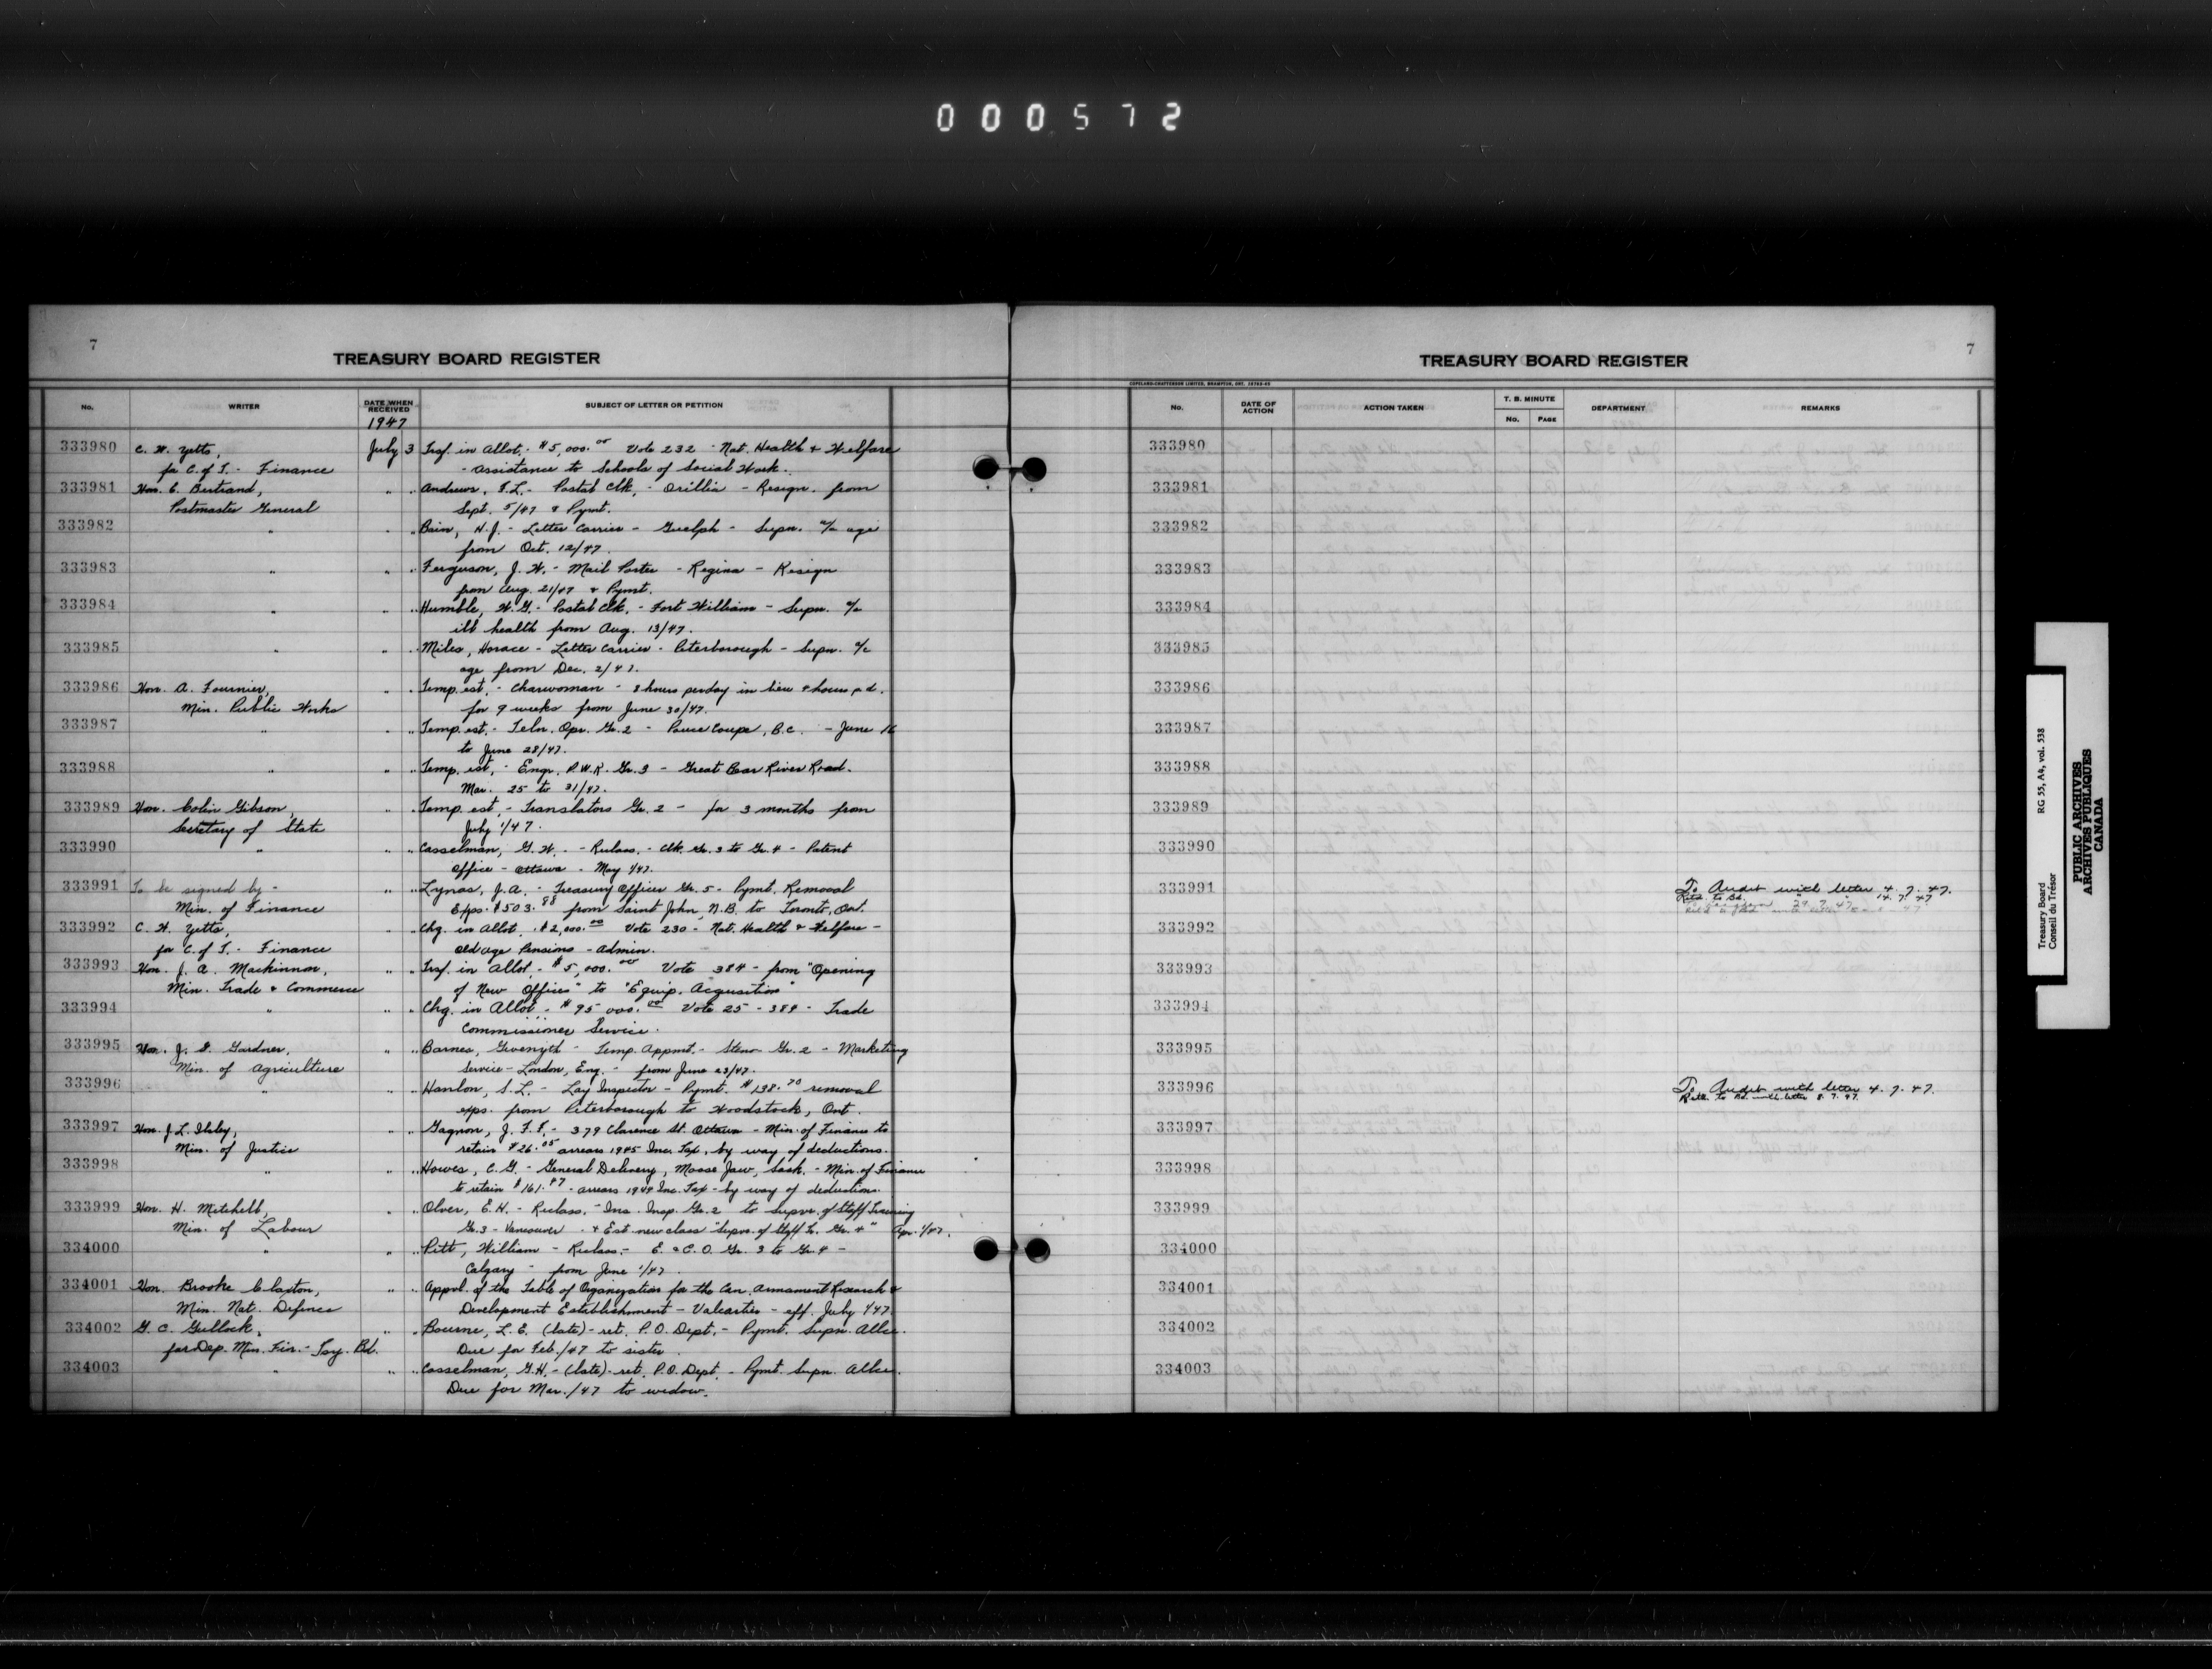 000572
7
TREASURY BOARD REGISTER
No. WRITER DATE WHEN RECEIVED SUBJECT OF LETTER OR PETITION
1947
333980 C. H. Yetts, July 3 Trsf. in Allot. - $5,000.00 Vote 232 - Nat. Health & Welfare
for C. of T. - Finance - Assistance to Schools of Social Work.
333981 Hon. E. Bertrand, " " Andrews, F.L. - Postal Clk. - Orillia - Resign. from
Postmaster General Sept. 5/47 & Pymt.
333982 " " " Bain, H.J. - Letter Carrier - Guelph - Supn. a/c age
from Oct. 12/47.
333983 " " " Ferguson, J. W. - Mail Porter - Regina - Resign
from Aug. 21/47 & Pymt.
333984 " " " Humble, W.G. - Postal Clk. - Fort William - Supn. a/c
ill health from Aug. 13/47.
333985 " " " Miles, Horace - Letter Carrier - Peterborough - Supn. a/c
age from Dec. 2/47.
333986 Hon. A. Fournier, " " Temp. est. - Charwoman - 8 hours per day in lieu 4 hours p.d.
Min. Public Works for 9 weeks from June 30/47.
333987 " " " Temp. est. - Teln. Opr. Gr. 2 - Pouce Coupe, B.C. - June 16
to June 28/47.
333988 " " " Temp. est. - Engr. P.W.R. Gr. 3 - Great Bear River Road.
Mar. 25 to 31/47.
333989 Hon. Colin Gibson, " " Temp. est. - Translators Gr. 2 - for 3 months from
Secretary of State July 1/47.
333990 " " " Casselman, G. W. - Reclass. - Clk. Gr. 3 to Gr. 4 - Patent
Office - Ottawa - May 1/47.
333991 To be signed by - " " Lynas, J.A. - Treasury Officer Gr. 5 - Pymt. Removal
Min. of Finance Exps. $503.88 from Saint John, N.B. to Toronto, Ont.
333992 C. H. Yetts, " " Chg. in Allot. $2,000.00 Vote 230 - Nat. Health & Welfare -
for C. of T. - Finance Old age Pensions - Admin.
333993 Hon. J. A. Mackinnon, " " Trsf. in Allot. - $5,000.00 Vote 384 - from "Opening
Min. Trade & Commerce of New Offices" to "Equip. Acquisition"
333994 " " " Chg. in Allot. - $95 000.00 Vote 25 - 384 - Trade
Commissioner Service.
333995 Hon. J. G. Gardner, " " Barnes, Gwenyth - Temp. Appmt. - Steno Gr. 2 - Marketing
Min. of Agriculture Service - London, Eng. - from June 23/47.
333996 " " " Hanlon, S.L. - Lay Inspector - Pymt. $198.70 removal
exps. from Peterborough to Woodstock, Ont.
333997 Hon. J L. Ilsley, " " Gagnon, J. F. F. - 379 Clarence St. Ottawa - Min. of Finance to
Min. of Justice retain $26.05 arrears 1945 Inc. Tax, by way of deductions.
333998 " " " Howes, C.G. - General Delivery, Moose Jaw, Sask. - Min. of Finance
to retain $161.47 - arrears 1944 Inc. Tax - by way of deductions.
333999 Hon. H. Mitchell, " " Olver, E.H. - Reclass. - Ins. Insp. Gr. 2 to Supvr. of Staff Training
Min. of Labour Gr. 3 - Vancouver - & Est. new class "Supvr. of Staff Tr. Gr. 4" Apr. 1/47.
334000 " " " Pitt, William - Reclass. - E. & C.O. Gr. 3 to Gr. 4 -
Calgary - from June 1/47.
334001 Hon. Brooke Claxton, " " Appvl. of the Table of Organization for the Can. Armament Research &
Min. Nat. Defence Development Establishment - Valcartier - eff. July 1/47.
334002 G. C. Gullock, " " Bourne, L.E. (late) - ret. P.O. Dept. - Pymt. Supn. Allce.
for Dep. Min. Fin. - Tsy. Bd. Due for Feb./47 to sister.
334003 " " " Casselman, G.H. - (late) - ret. P.O. Dept. - Pymt. Supn. Allce.
Due for Mar./47 to widow.
7
TREASURY BOARD REGISTER
COPELAND-CHATTERSON LIMITED, BRAMPTON, ONT.
No. DATE OF ACTION ACTION TAKEN T. B. MINUTE No. PAGE DEPARTMENT REMARKS
333980
333981
333982
333983
333984
333985
333986
333987
333988
333989
333990
333991 To Audit with letter 4.7.47.
Retd. to Bd. " 14.7.47
333992
333993
333994
333995
333996 To Audit with letter 4.7.47.
Retd. to Bd. with letter 8.7.47.
333997
333998
333999
334000
334001
334002
334003
Treasury Board RG 55, A4, vol. 538
Conseil du Trésor
PUBLIC ARCHIVES
ARCHIVES PUBLIQUES
CANADA